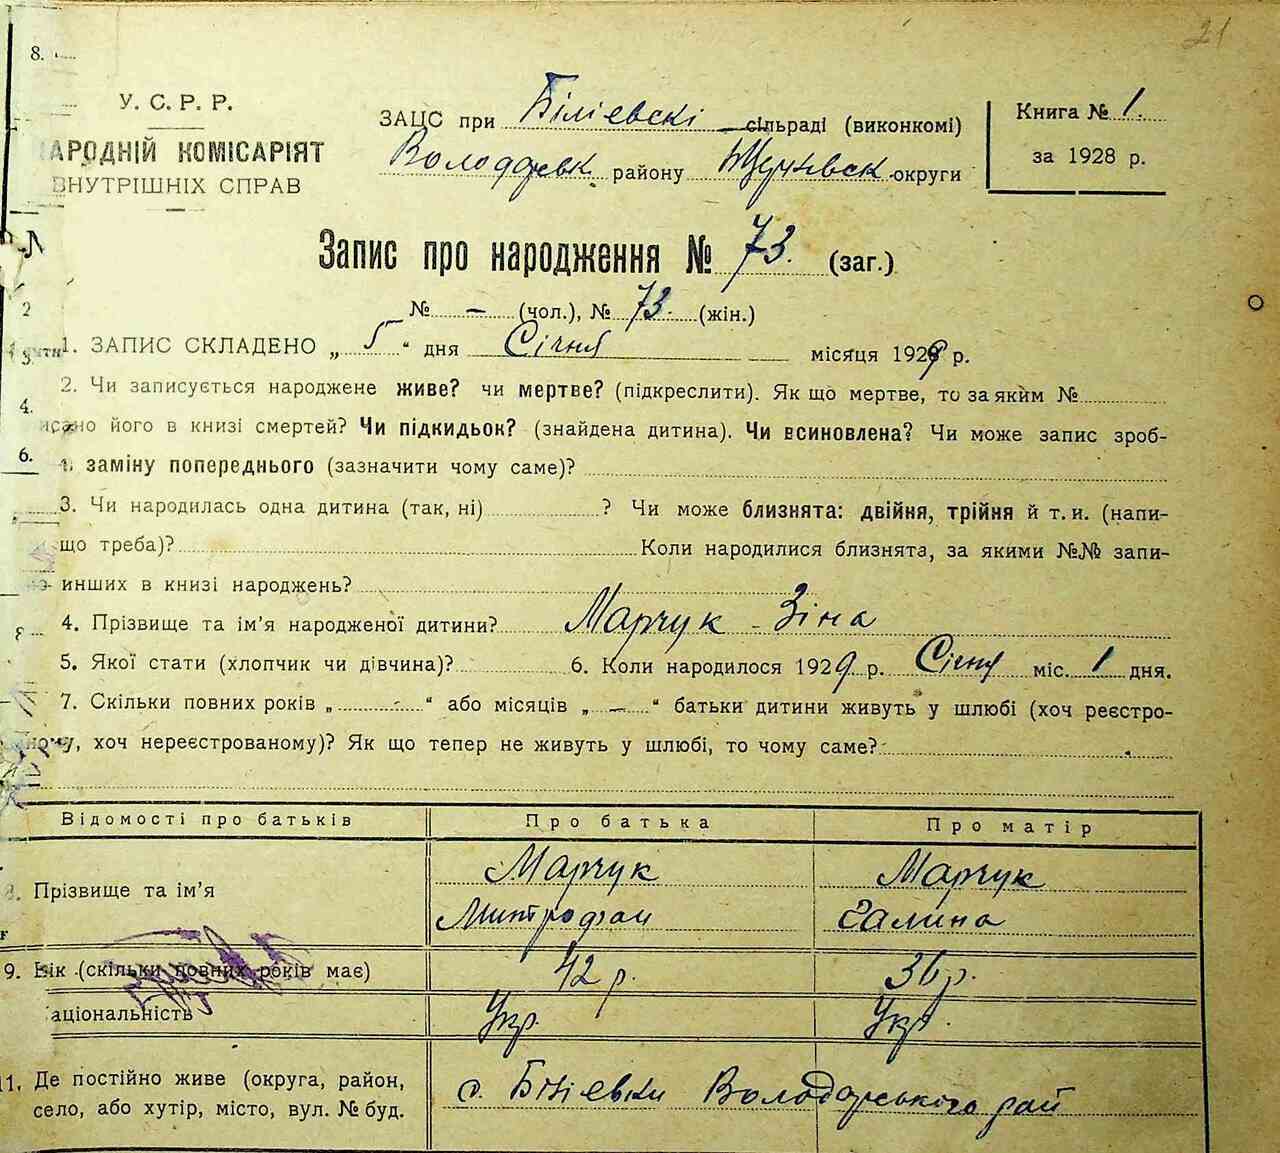 21
8.
У. С. Р. Р.
АРОДНІЙ КОМІСАРІЯТ
ВНУТРІШНІХ СПРАВ
ЗАЦС при Білієвскі сільраді (виконкомі)
Володарськ району округи
Книга № 1.
за 1928 р.
Запис про народження № 73. (заг.)
№ – (чол.), № 73. (жін.)
1. ЗАПИС СКЛАДЕНО „ 5 “ дня Січня місяця 1929 р.
2. Чи записується народжене живе? чи мертве? (підкреслити). Як що мертве, то за яким №
його в книзі смертей? Чи підкидьок? (знайдена дитина). Чи всиновлена? Чи може запис зроб-
заміну попереднього (зазначити чому саме)?
3. Чи народилась одна дитина (так, ні) ? Чи може близнята: двійня, трійня й т. и. (напи-
що треба)? Коли народилися близнята, за якими №№ запи-
инших в книзі народжень?
4. Прізвище та ім’я народженої дитини? Марчук - Зіна
5. Якої стати (хлопчик чи дівчина)? 6. Коли народилося 1929 р. Січня міс. 1 дня.
7. Скільки повних років „ “ або місяців „ – “ батьки дитини живуть у шлюбі (хоч реєстро-
хоч нереєстрованому)? Як що тепер не живуть у шлюбі, то чому саме?
Відомості про батьків Про батька Про матір
Прізвище та ім’я
Марчук
Митрофан
Марчук
Галина
9. Вік (скільки повних років має) 42 р. 36 р.
аціональність Укр. Укр.
11. Де постійно живе (округа, район,
село, або хутір, місто, вул. № буд.
с. Білієвки Володарського рай